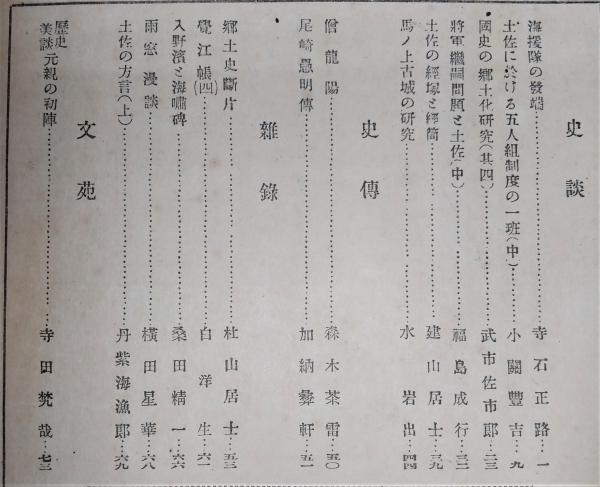 史談
海援隊の發端…………寺石正路…一
土佐に於ける五人組制度の一班(中)…………小關豐吉…九
國史の鄕土化研究(其四)…………武市佐市郞…二三
將軍繼嗣問題と土佐(中)…………福島成行…三二
土佐の經塚と經筒…………建山居士…三九
馬ノ上古城の硏究…………水岩出…四四
史傳
僧龍陽…………森木茶雷…五〇
尾崎愚明傳…………加納彜軒…五一
雜錄
鄕土史斷片…………杜山居士…五三
覺江帳(四)…………白洋生…六一
入野濱と海嘯碑…………桑田精一…六六
雨窓漫談…………横田星華…六八
土佐の方言(上)…………丹紫海漁郞…六九
文苑
歷史美談元親の初陣…………寺田梵哉…七三